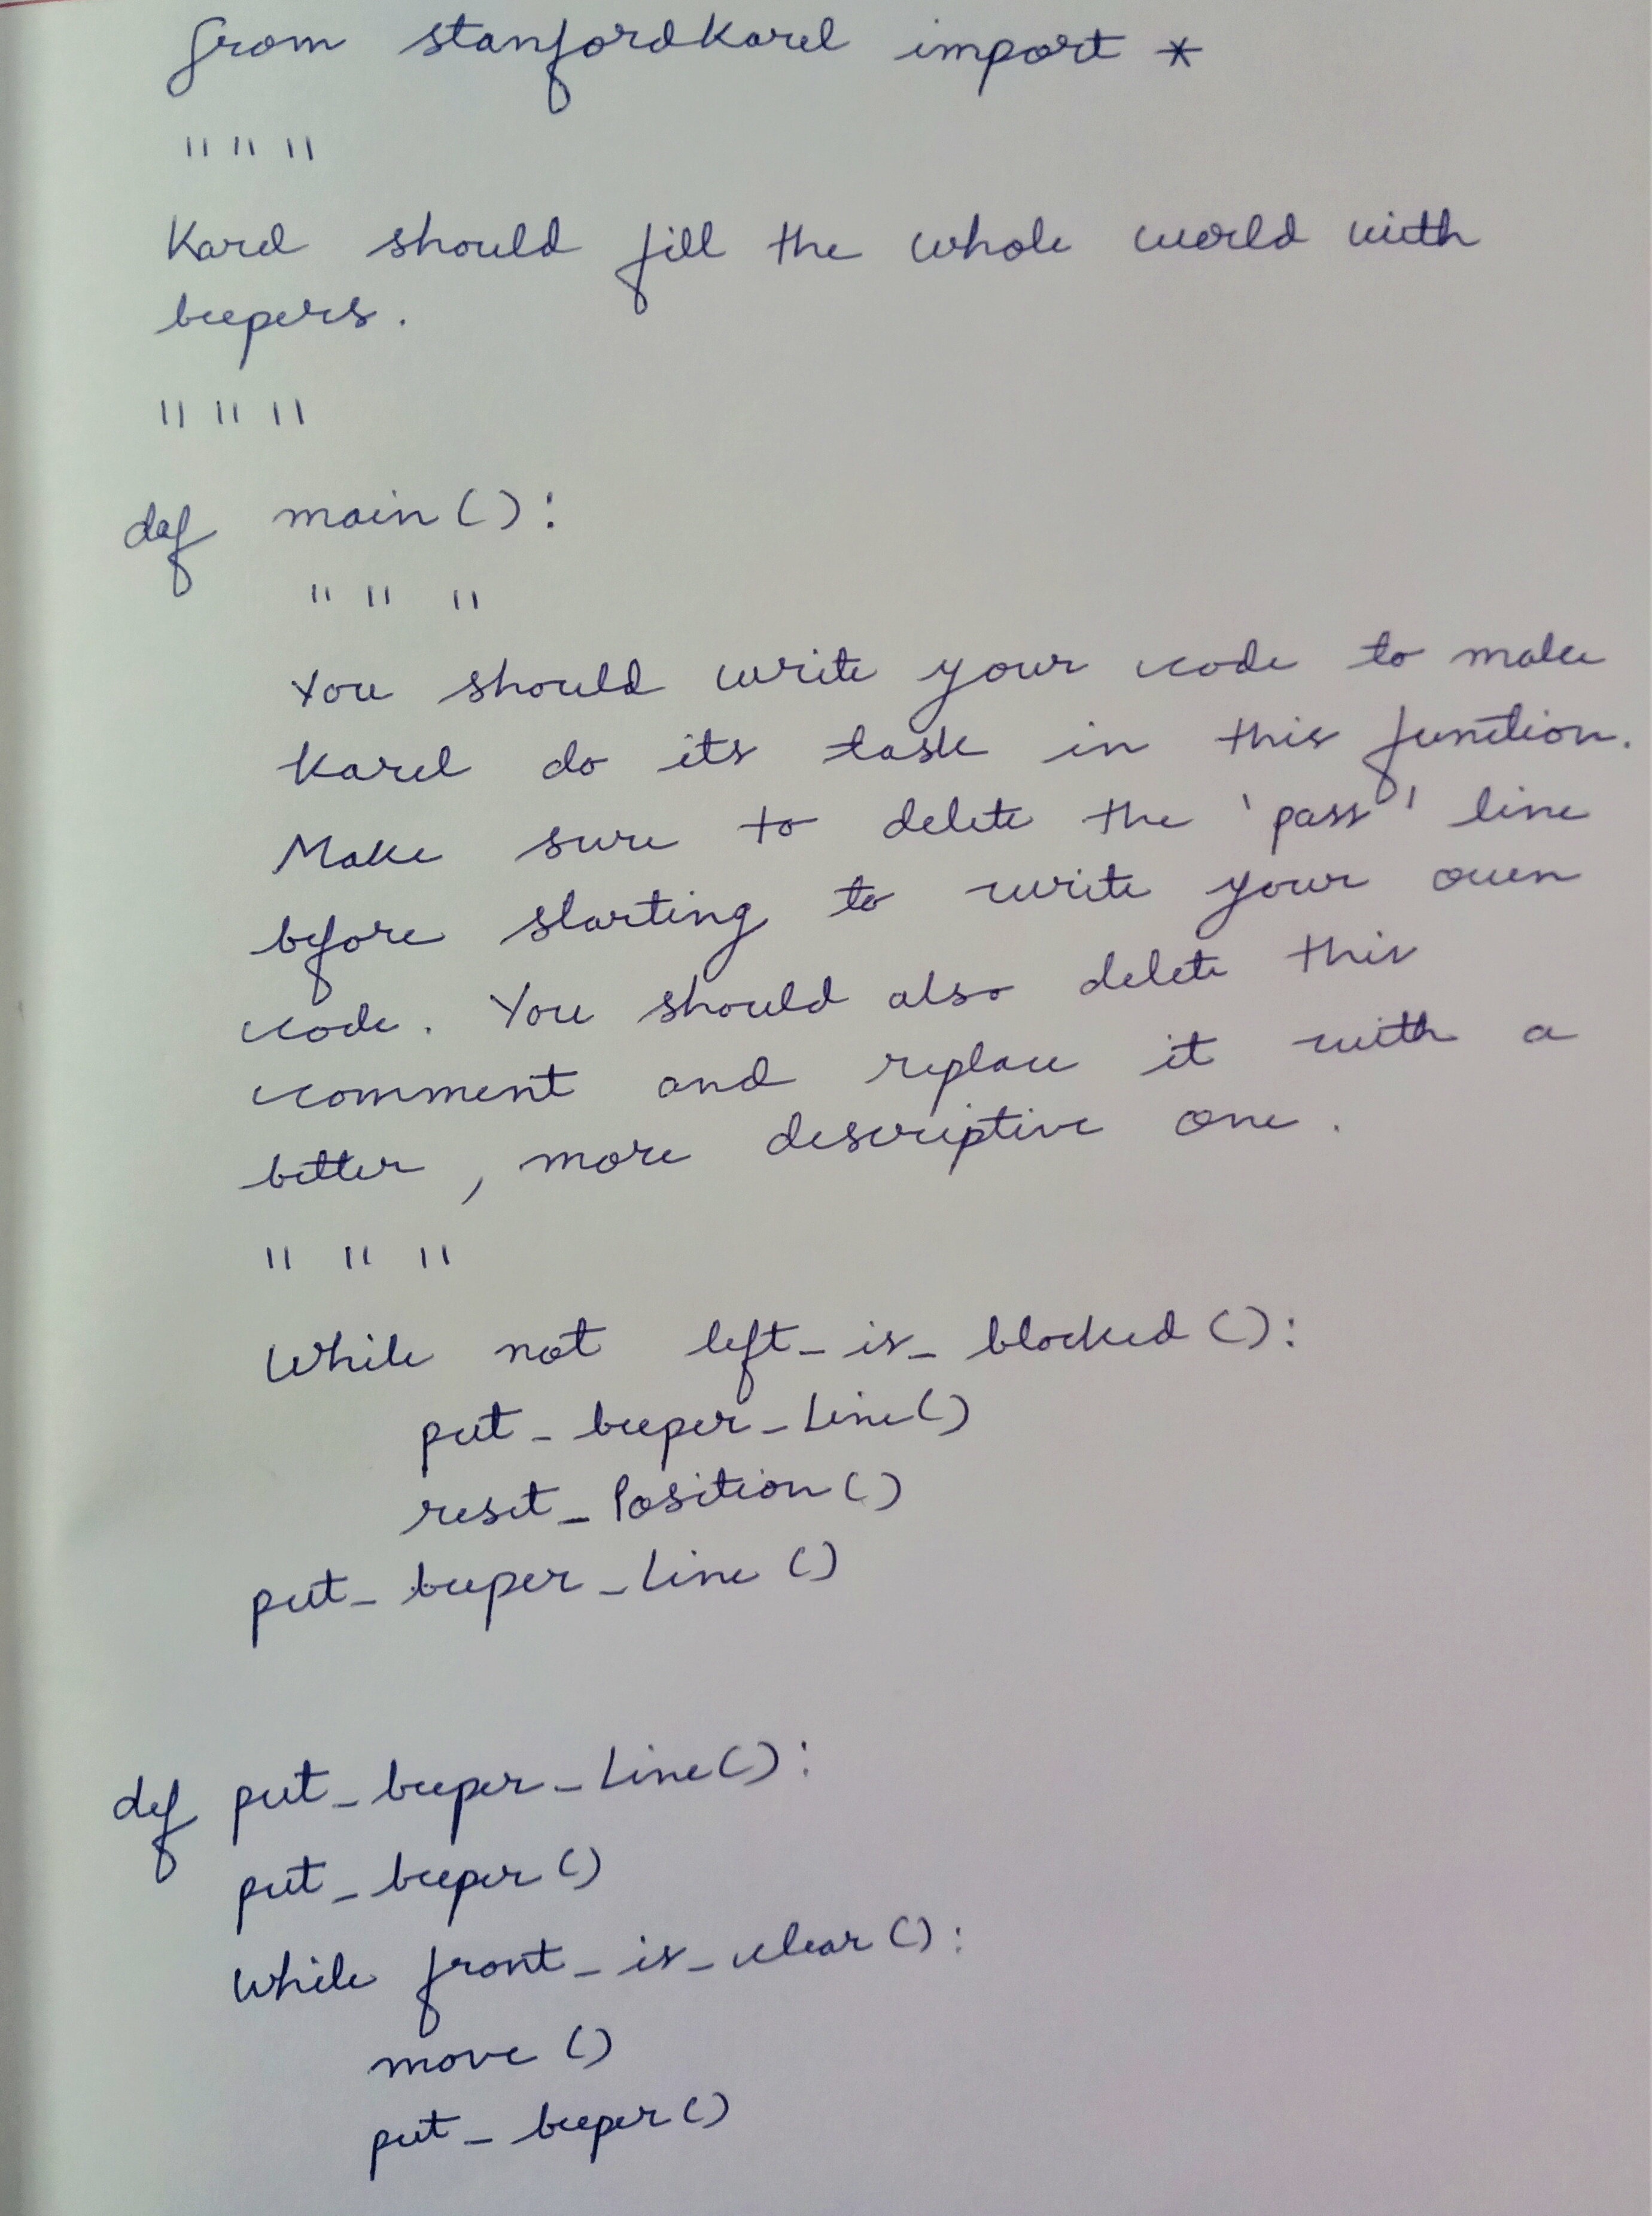 from stanfordkarel import *
"""
Karel should fill the whole world with
beepers.
"""
def main():
"""
You should write your code to make
Karel do its task in this function.
Make sure to delete the 'pass' line
before starting to write your own
code. You should also delete this
comment and replace it with a
better, more descriptive one.
"""
While not left_is_blocked():
put_beeper_line()
reset_Position()
put_beeper_line()
def put_beeper_line():
put_beeper()
While front_is_clear():
move()
put_beeper()